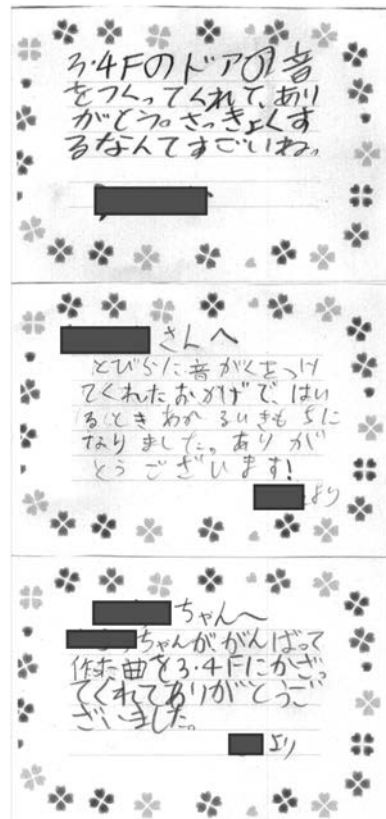 3・4Fのドアの音
をつくってくれて、あり
がとう。さっきょくす
るなんてすごいね。
さんへ
とびらに音がくをつけ
てくれたおかげで、はい
るときあかるいきもちに
なりました。ありが
とうございます!
より
ちゃんへ
ちゃんが、がんばって
作た曲を3・4Fにかざっ
てくれてありがとうご
ざいました。
より